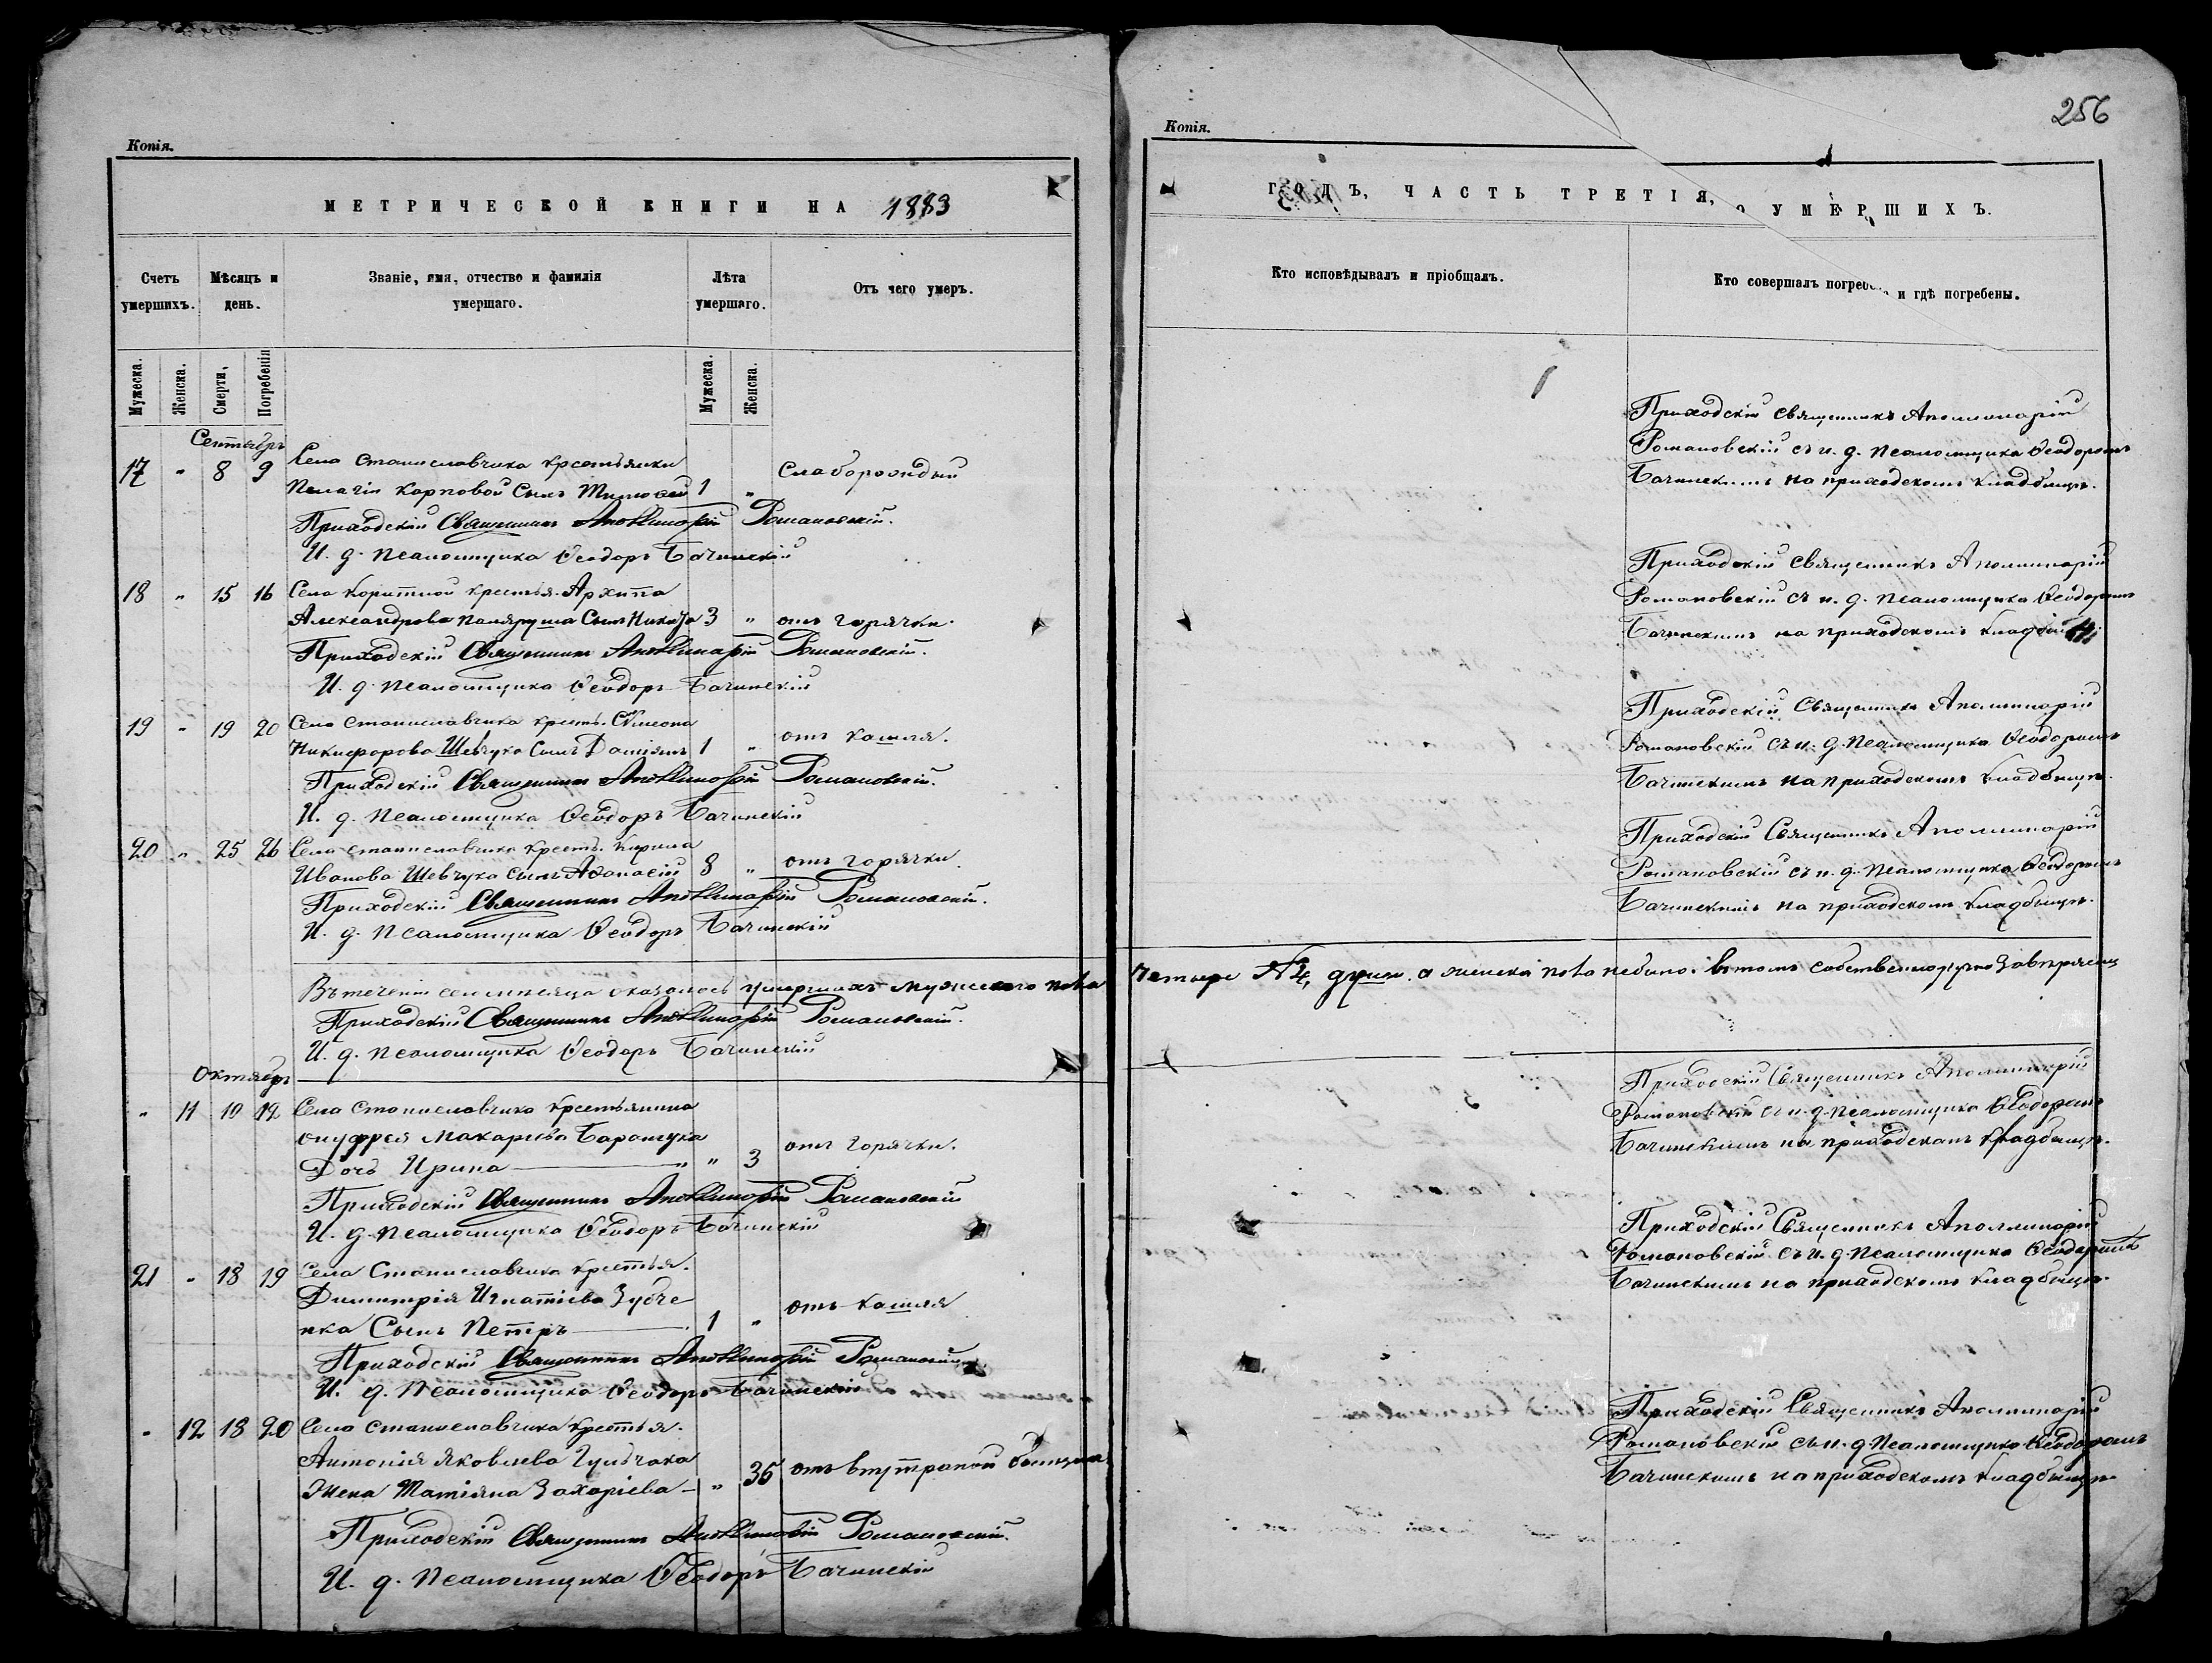 Копія.
МЕТРИЧЕСКОЙ КНИГИ НА 1883
Счетъ умершихъ.
Мѣсяцъ и день.
Званіе, имя, отчество и фамилія умершаго.
Лѣта умершаго.
Отъ чего умеръ.
Мужеска.
Женска.
Смерти,
Погребенія
Мужеска.
Женска.
Сентябрь
Села Станиславчика крестьянки
17 " 8 9 Пелагіи Карповой Сынъ 1 " Слаборожденый
Приходскій Священникъ Аполлинарій Романовскій.
И. д. псаломщика Ѳеодоръ Бачинскій
18 " 15 16 Села Коритной крестья. Архипа
Александрова Сынъ Никита 3 " отъ горячки.
Приходскій Священникъ Аполлинарій Романовскій.
И. д. псаломщика Ѳеодоръ Бачинскій
19 " 19 20 Села Станиславчика крестъ. Симеона
Никифорова Шевчука Сынъ Даміянъ 1 " отъ кашля.
Приходскій Священникъ Аполлинарій Романовскій.
И. д. псаломщика Ѳеодоръ Бачинскій
20 " 25 26 Села Станиславчика крестъ. Кирила
Иванова Шевчука сынъ Аѳанасій 8 " отъ горячки
Приходскій Священникъ Аполлинарій Романовскій.
И. д. Псаломщика Ѳеодоръ Бачинскій
Въ теченіи сего мѣсяца оказалось умершихъ мужескаго пола
Приходскій Священникъ Аполлинарій Романовскій.
И. д. псаломщика Ѳеодоръ Бачинскій
Октябрь
" 11 10 12 Села Станиславчика крестьянина
Онуфрея Макаріева Баранчука
Дочь Ирина " " 3 отъ горячки.
Приходскій Священникъ Аполлинарій Романовскій
И. д. псаломщика Ѳеодоръ Бачинскій
21 " 18 19 Села Станиславчика крестья.
Димитрія Игнатіева Зубче
нка Сынъ Петръ 1 " отъ кашля
Приходскій Священникъ Аполлинарій Романовскій.
И. д. псаломщика Ѳеодоръ Бачинскій
" 12 18 20 Села Станиславчика крестья.
Антонія Яковлева Гульчака
Жена Татіяна Захаріева " 35 отъ внутраной
Приходскій Священникъ Аполлинарій Романовскій.
И. д. псаломщика Ѳеодоръ Бачинскій
256
Копія.
ГОДЪ, ЧАСТЬ ТРЕТІЯ, О УМЕРШИХЪ.
Кто исповѣдывалъ и пріобщалъ.
Кто совершалъ погребе и гдѣ погребены.
Приходскій священникъ Аполлинарій
Романовскій съ и. д. псаломщика Ѳеодоромъ
Бачинскимъ на приходскомъ кладбищѣ.
Приходскій священникъ Аполлинарій
Романовскій съ и. д. псаломщика Ѳеодоромъ
Бачинскимъ на приходскомъ
Приходскій Священникъ Аполлинарій
Романовскій съ и. д. псаломщика Ѳеодоромъ
Бачинскимъ на приходскомъ кладбищѣ.
Приходскій Священникъ Аполлинарій
Романовскій съ и. д. псаломщика Ѳеодоромъ
Бачинскимъ на приходскомъ кладбищѣ.
четыре №4, души. а женска пола небыло. в томъ собственноручно
Приходскій Священникъ Аполлинарій
Романовскій съ и. д. псаломщика Ѳеодоромъ
Бачинскимъ на приходскомъ кладбищѣ.
Приходскій Священникъ Аполлинарій
Романовскій съ и. д. псаломщика Ѳеодоромъ
Бачинскимъ на приходскомъ кладбищѣ.
Приходскій Священникъ Аполлинарій
Романовскій съ и. д. псаломщика Ѳеодоромъ
Бачинскимъ на приходскомъ кладбищѣ